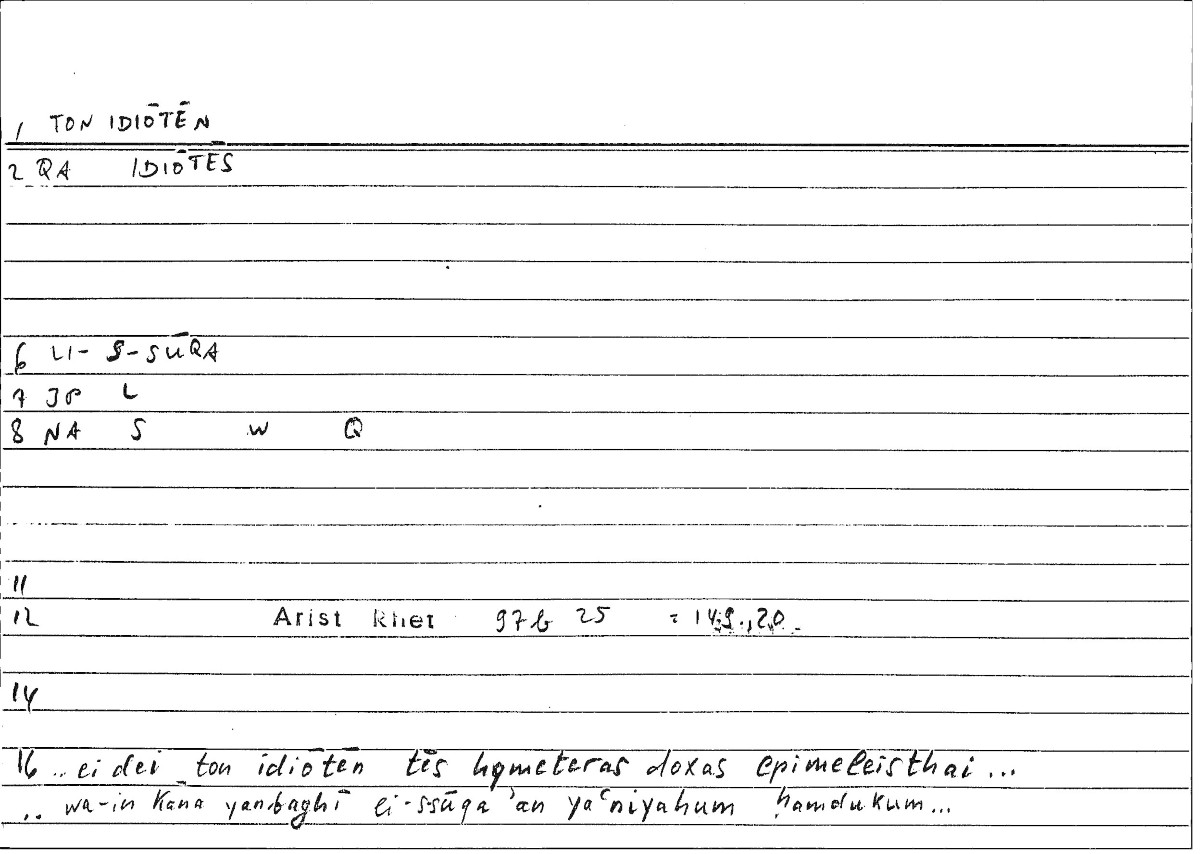 1 TON IDIŌTĒN
2 QA IDIŌTĒS
6 LI- S-SŪQA
7 JP L
8 NA S W Q
11
12 Arist Rhet 97b 25 = 149.,20
14
16 .. ei dei ton idiōtēn tēs hymeteras doxas epimeleisthai ...
.. wa-in kāna yanbaghī li-s-sūqa 'an ya‘niyahum ḥamdukum ...